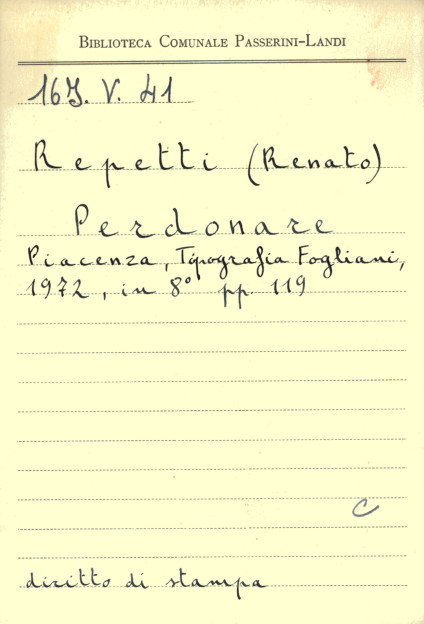 Biblioteca Comunale Passerini-Landi
16J. V. 41
Repetti (Renato)
Perdonare
Piacenza, Tipografia Fogliani,
1972, in 8° pp. 119
C
diritto di stampa